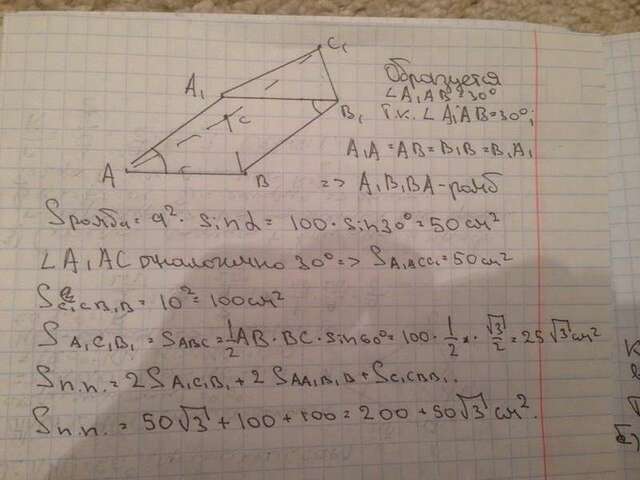 C₁
A₁
B₁
C
A
C
B
Образуется
∠A₁AB=30°
т.к. ∠A₁AB=30°;
A₁A=AB=B₁B=B₁A₁
=> A₁B₁BA-ромб
Sромба=a²·sinα=100·sin30°=50см²
∠A₁AC аналогично 30°=>SA₁ACC₁=50см²
SC₁CB₁B=10²=100см²
SA₁C₁B₁=SABC=1/2AB·BC·sin60°=100·1/2·√3/2=25√3см²
Sп.п.=2SA₁C₁B₁+2SAA₁B₁B+SC₁CBB₁.
Sп.п.=50√3+100+100=200+50√3см².